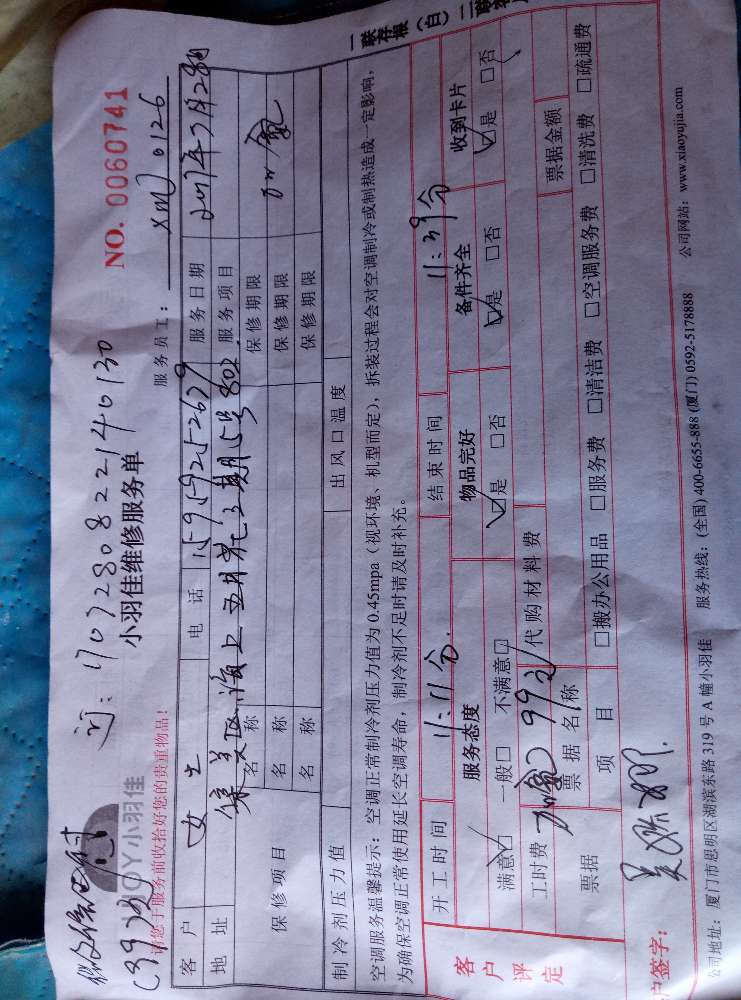 订：1707280822140130
小羽佳维修服务单
NO. 0060741
XOY小羽佳
请您于服务前收拾好您的贵重物品！
服务员工： xm 0126
客户 女士 电话 15959252679 服务日期 2017年7月28日
地址 集美区海上五月花2期15号802 服务项目 加氟
保修项目 名称 保修期限
名称 保修期限
名称 保修期限
制冷剂压力值 出风口温度
空调服务温馨提示：空调正常制冷剂压力值为0.45mpa（视环境、机型而定），拆装过程会对空调制冷或制热造成一定影响，
为确保空调正常使用延长空调寿命，制冷剂不足时请及时补充。
客户评定
开工时间 11:11分 结束时间 11:39分
服务态度 物品完好 备件齐全 收到卡片
满意☑ 一般□ 不满意□ ☑是 □否 ☑是 □否 ☑是 □否
工时费 加氟99元 代购材料费 票据金额
票据 票据名称
项目 □搬办公用品 □服务费 □清洁费 □空调服务费 □清洗费 □疏通费
户签字：
公司地址：厦门市思明区湖滨东路319号A幢小羽佳 服务热线：(全国) 400-6655-888 (厦门) 0592-5178888 公司网站：www.xiaoyujia.com
一联存根（白）二联